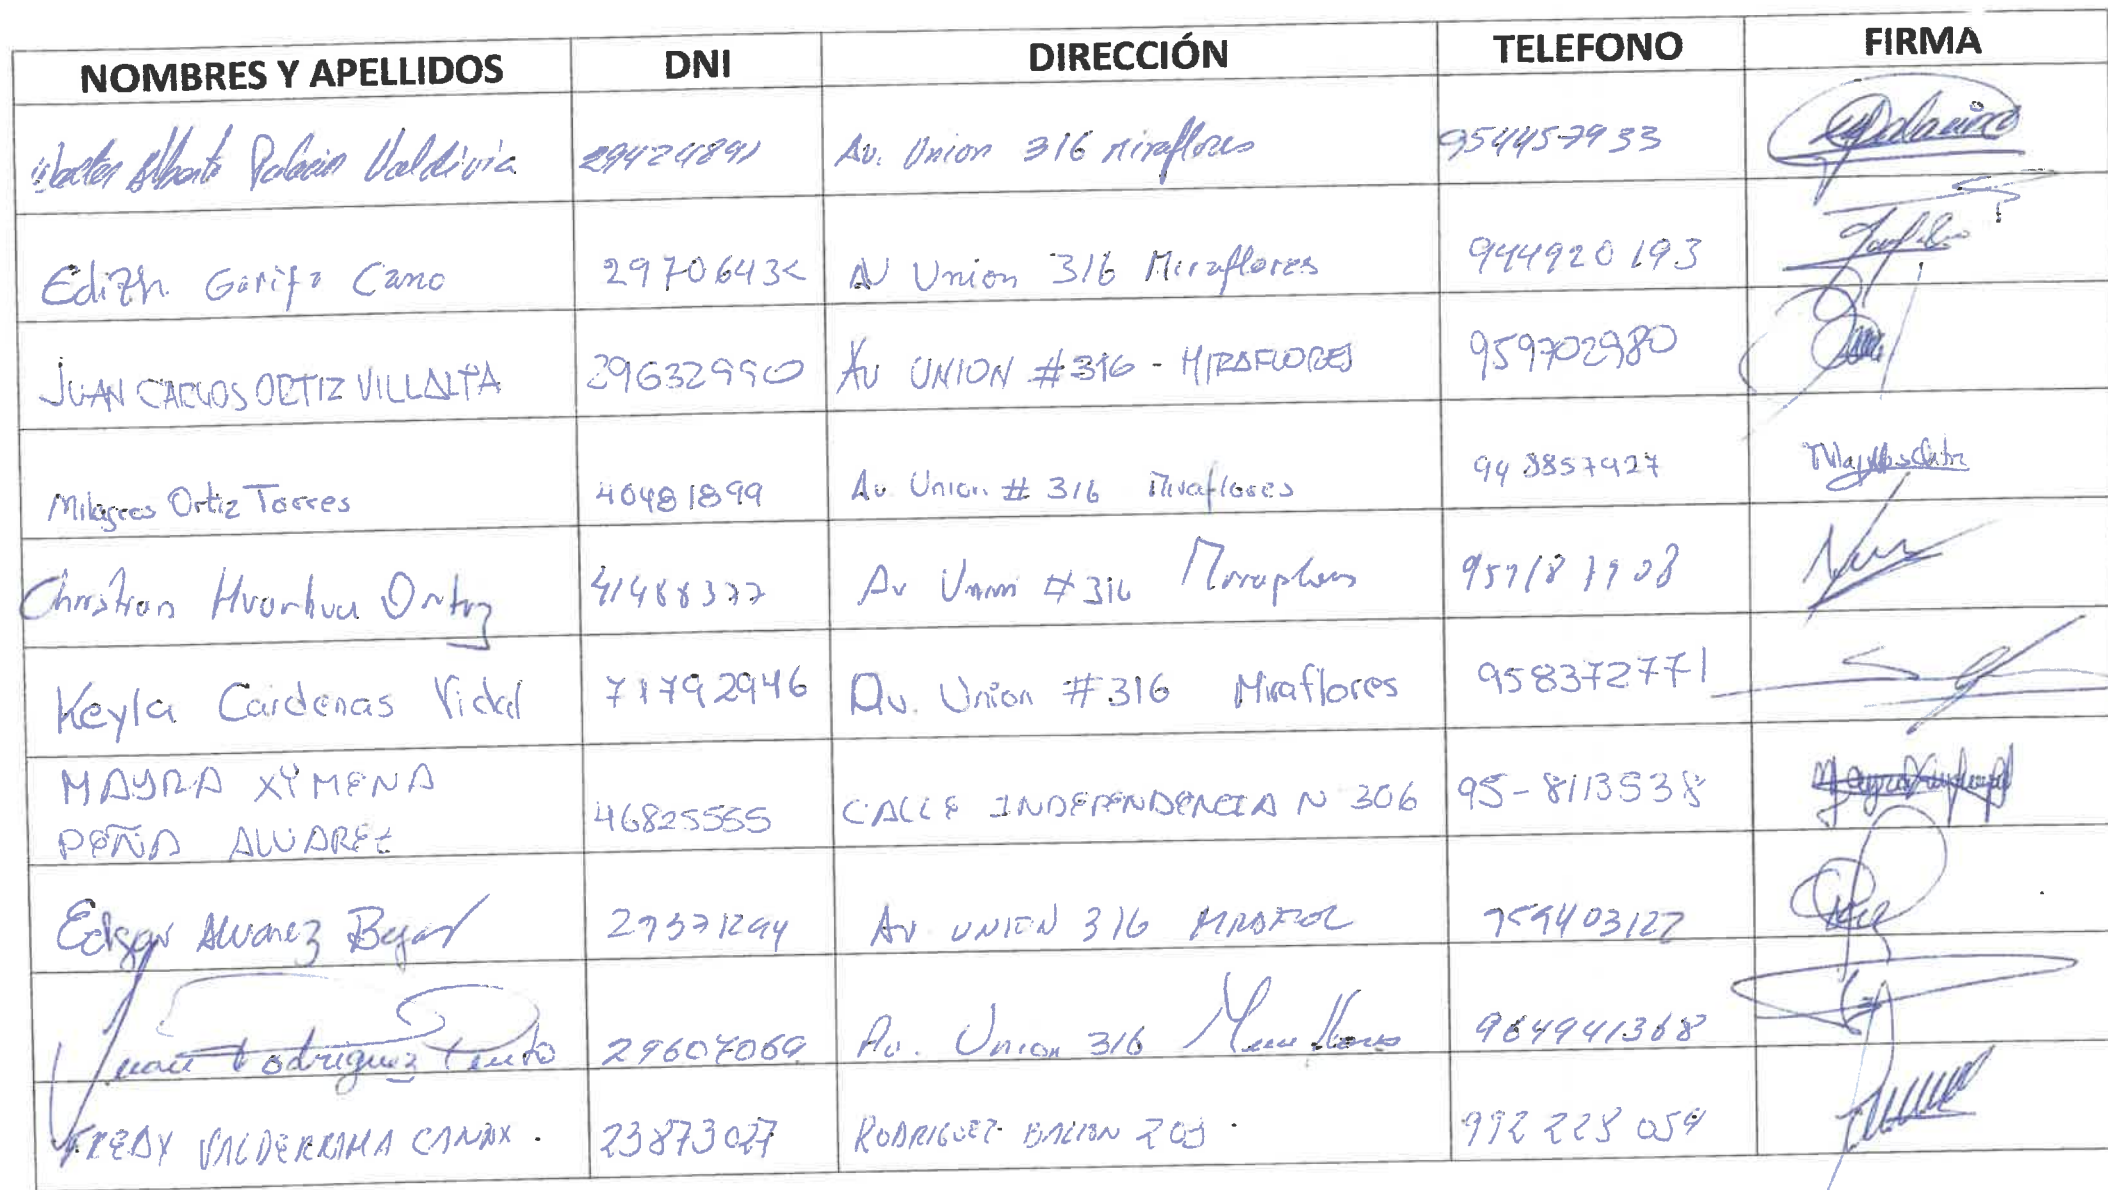 NOMBRES Y APELLIDOS DNI DIRECCIÓN TELEFONO FIRMA
Walter Alberto Palacin Valdivia 29424891 Av. Union 316 Miraflores 954457933
Edith Garifa Cano 2970643 AV Union 316 Miraflores 944920193
JUAN CARLOS ORTIZ VILLALTA 29632990 AV UNION #316 - MIRAFLORES 959702980
Milagros Ortiz Torres 40481899 Av. Union # 316 Miraflores 943857927
Christian Huarhua Ortiz 41488377 Av Union #316 Miraflores
Keyla Cardenas Vidal 71792946 Av. Union #316 Miraflores 958372771
MAYRA XYMENA
PEÑA ALVAREZ 46825555 CALLE INDEPENDENCIA N 306 95-8113538
Edgar Alvarez Bejar 29371294 AV UNION 316 MIRAFLOR 959403127
Juan Rodriguez 29607069 Av. Union 316 Miraflores 964941368
FREDY VALDERRAMA CANAX. 23873027 RODRIGUEZ BALLON 203. 992 228 059